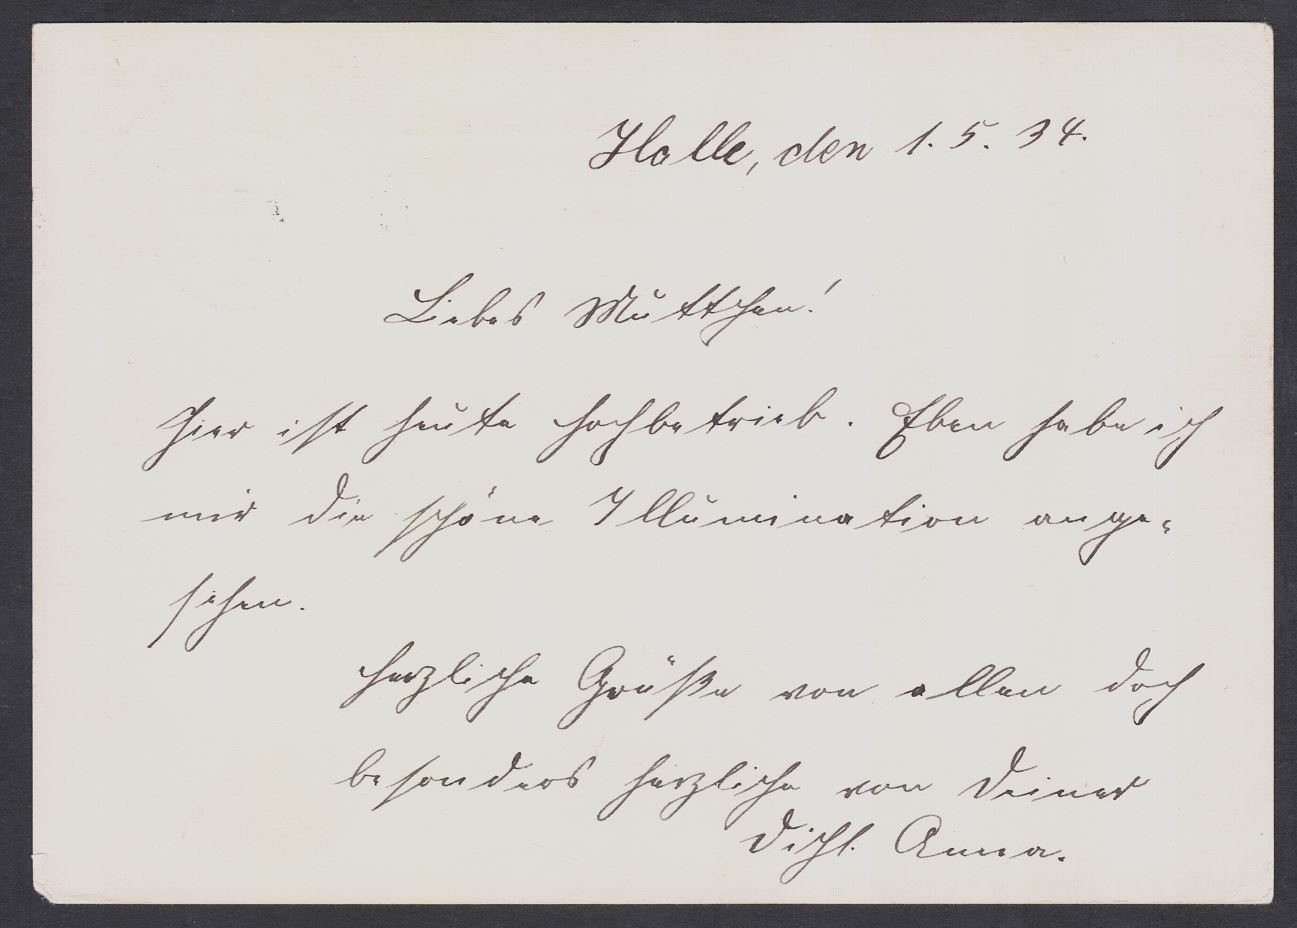 Halle, den 1.5.34.
Liebes Muttchen!
Hier ist heute Hochbetrieb. Eben habe ich
mir die schöne Illumination ange-
sehen.
Herzliche Grüße von allen doch
besonders herzliche von Deiner
Anna.